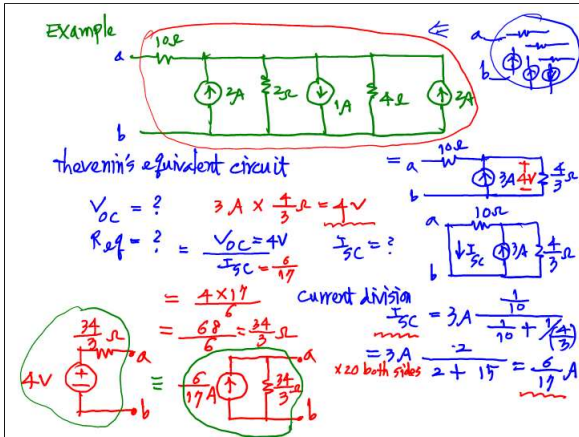 Example
a
10Ω
2A
2Ω
1A
4Ω
2A
b
⇐
a
b
Thevenin's equivalent circuit
= a
10Ω
3A
+
4V
-
4/3 Ω
b
V_OC = ?
3A × 4/3 Ω = 4V
R_eq = ?
= V_OC = 4V / I_SC = 6/17
I_SC = ?
a
10Ω
I_SC
3A
4/3 Ω
b
= 4×17 / 6
= 68/6 = 34/3 Ω
current division
I_SC = 3A (1/10) / (1/10 + 1/(4/3))
×20 both sides
= 3A 2 / (2 + 15) = 6/17 A
34/3 Ω
a
4V
+
-
b
≡
6/17 A
34/3 Ω
a
b